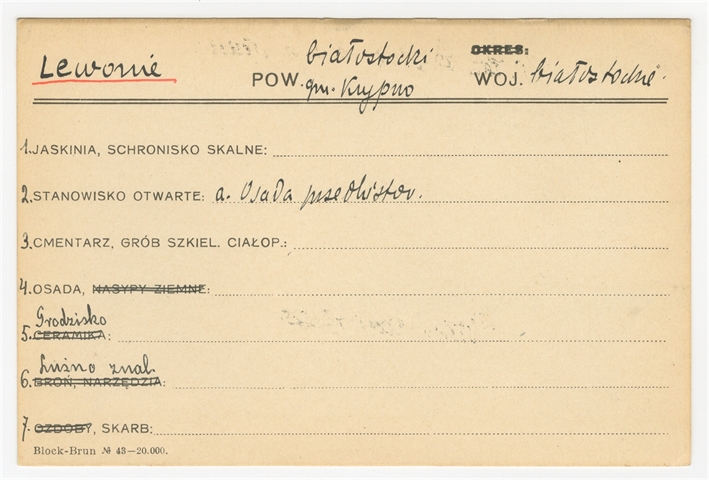 Lewonie
białostocki
OKRES:
POW. gm. Krypno WOJ. białostockie
1. JASKINIA, SCHRONISKO SKALNE:
2. STANOWISKO OTWARTE: a. Osada przedhistor.
3. CMENTARZ, GRÓB SZKIEL. CIAŁOP.:
4. OSADA, NASYPY ZIEMNE:
Grodzisko
5. CERAMIKA:
Luźno znal.
6. BROŃ, NARZĘDZIA:
7. OZDOBY, SKARB:
Block-Brun № 43—20.000.